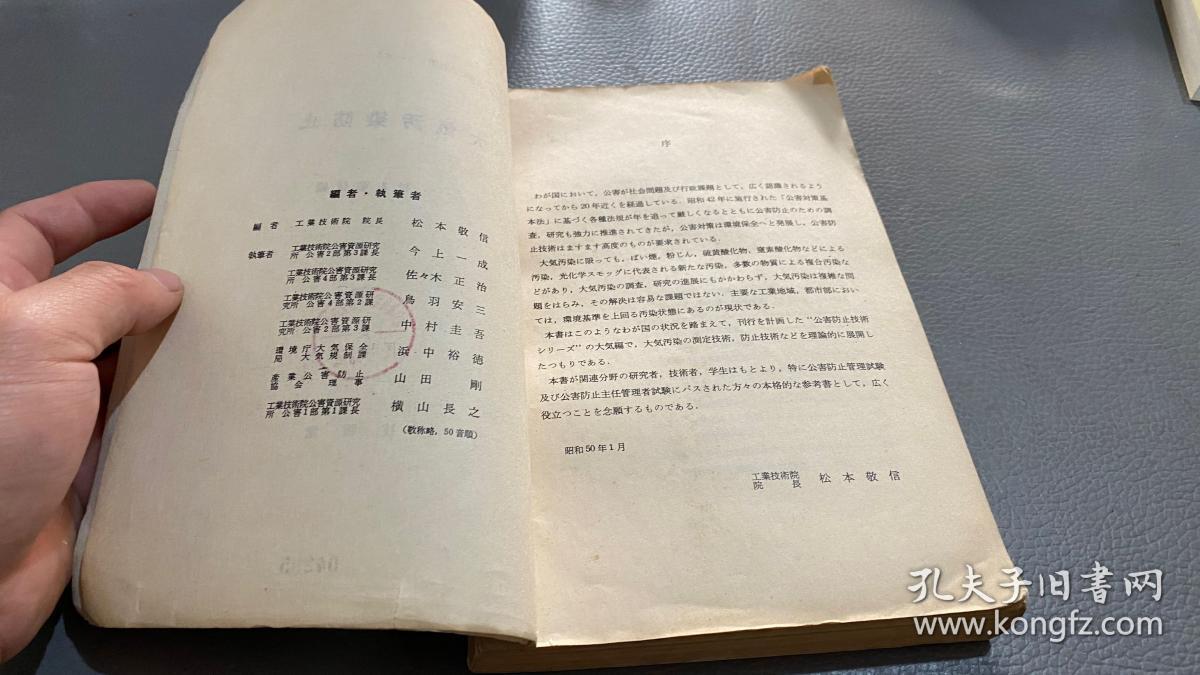 編者・執筆者
編者 工業技術院 院長 松本敬信
執筆者 工業技術院公害資源研究所 公害2部第3課長 今上一成
工業技術院公害資源研究所 公害4部第3課長 佐々木正治
工業技術院公害資源研究所 公害4部第2課 鳥羽安三
工業技術院公害資源研究所 公害2部第3課 中村圭吾
環境庁大気保全局 大気規制課 浜中裕徳
産業公害防止協会 理事 山田剛
工業技術院公害資源研究所 公害1部第1課長 横山長之
(敬称略,50音順)
序
わが国において,公害が社会問題及び行政課題として,広く認識されるよう
になってから20年近くを経過している.昭和42年に施行された「公害対策基
本法」に基づく各種法規が年を追って厳しくなるとともに公害防止のための調
査,研究も強力に推進されてきたが,公害対策は環境保全へと発展し,公害防
止技術はますます高度のものが要求されている.
大気汚染に限っても,ばい煙,粉じん,硫黄酸化物,窒素酸化物などによる
汚染,光化学スモッグに代表される新たな汚染,多数の物質による複合汚染な
どがあり,大気汚染の調査,研究の進展にもかかわらず,大気汚染は複雑な問
題をはらみ,その解決は容易な課題ではない.主要な工業地域,都市部におい
ては,環境基準を上回る汚染状態にあるのが現状である.
本書はこのようなわが国の状況を踏まえて,刊行を計画した“公害防止技術
シリーズ”の大気編で,大気汚染の測定技術,防止技術などを理論的に展開し
たつもりである.
本書が関連分野の研究者,技術者,学生はもとより,特に公害防止管理試験
及び公害防止主任管理者試験にパスされた方々の本格的な参考書として,広く
役立つことを念願するものである.
昭和50年1月
工業技術院 院長 松本敬信
孔夫子旧书网
www.kongfz.com